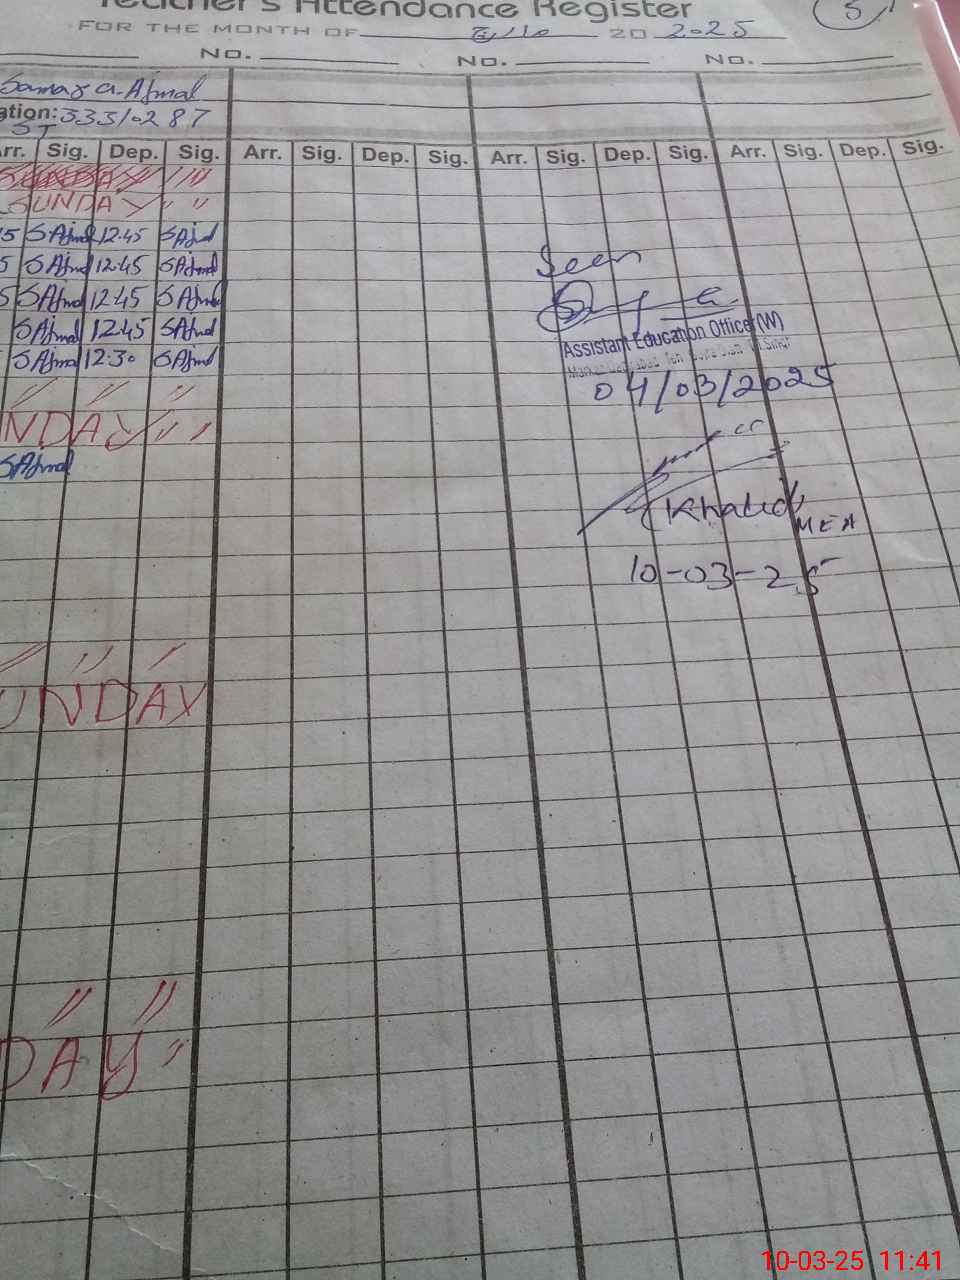 Teacher's Attendance Register
5
FOR THE MONTH OF 20 2025
NO. NO. NO.
Ajmal
ation: 33310287
ST
Arr. Sig. Dep. Sig. Arr. Sig. Dep. Sig. Arr. Sig. Dep. Sig. Arr. Sig. Dep. Sig.
SUNDAY " "
5 SAjmal 12:45 SAjmal
5 SAjmal 12:45 SAjmal
5 SAjmal 12:45 SAjmal
SAjmal 12:45 SAjmal
SAjmal 12:30 SAjmal
NDAY " "
SAjmal
UNDAY
DAY "
Seen
Assistant Education Officer (W)
04/03/2025
(Khalid)
MEA
10-03-25
10-03-25 11:41